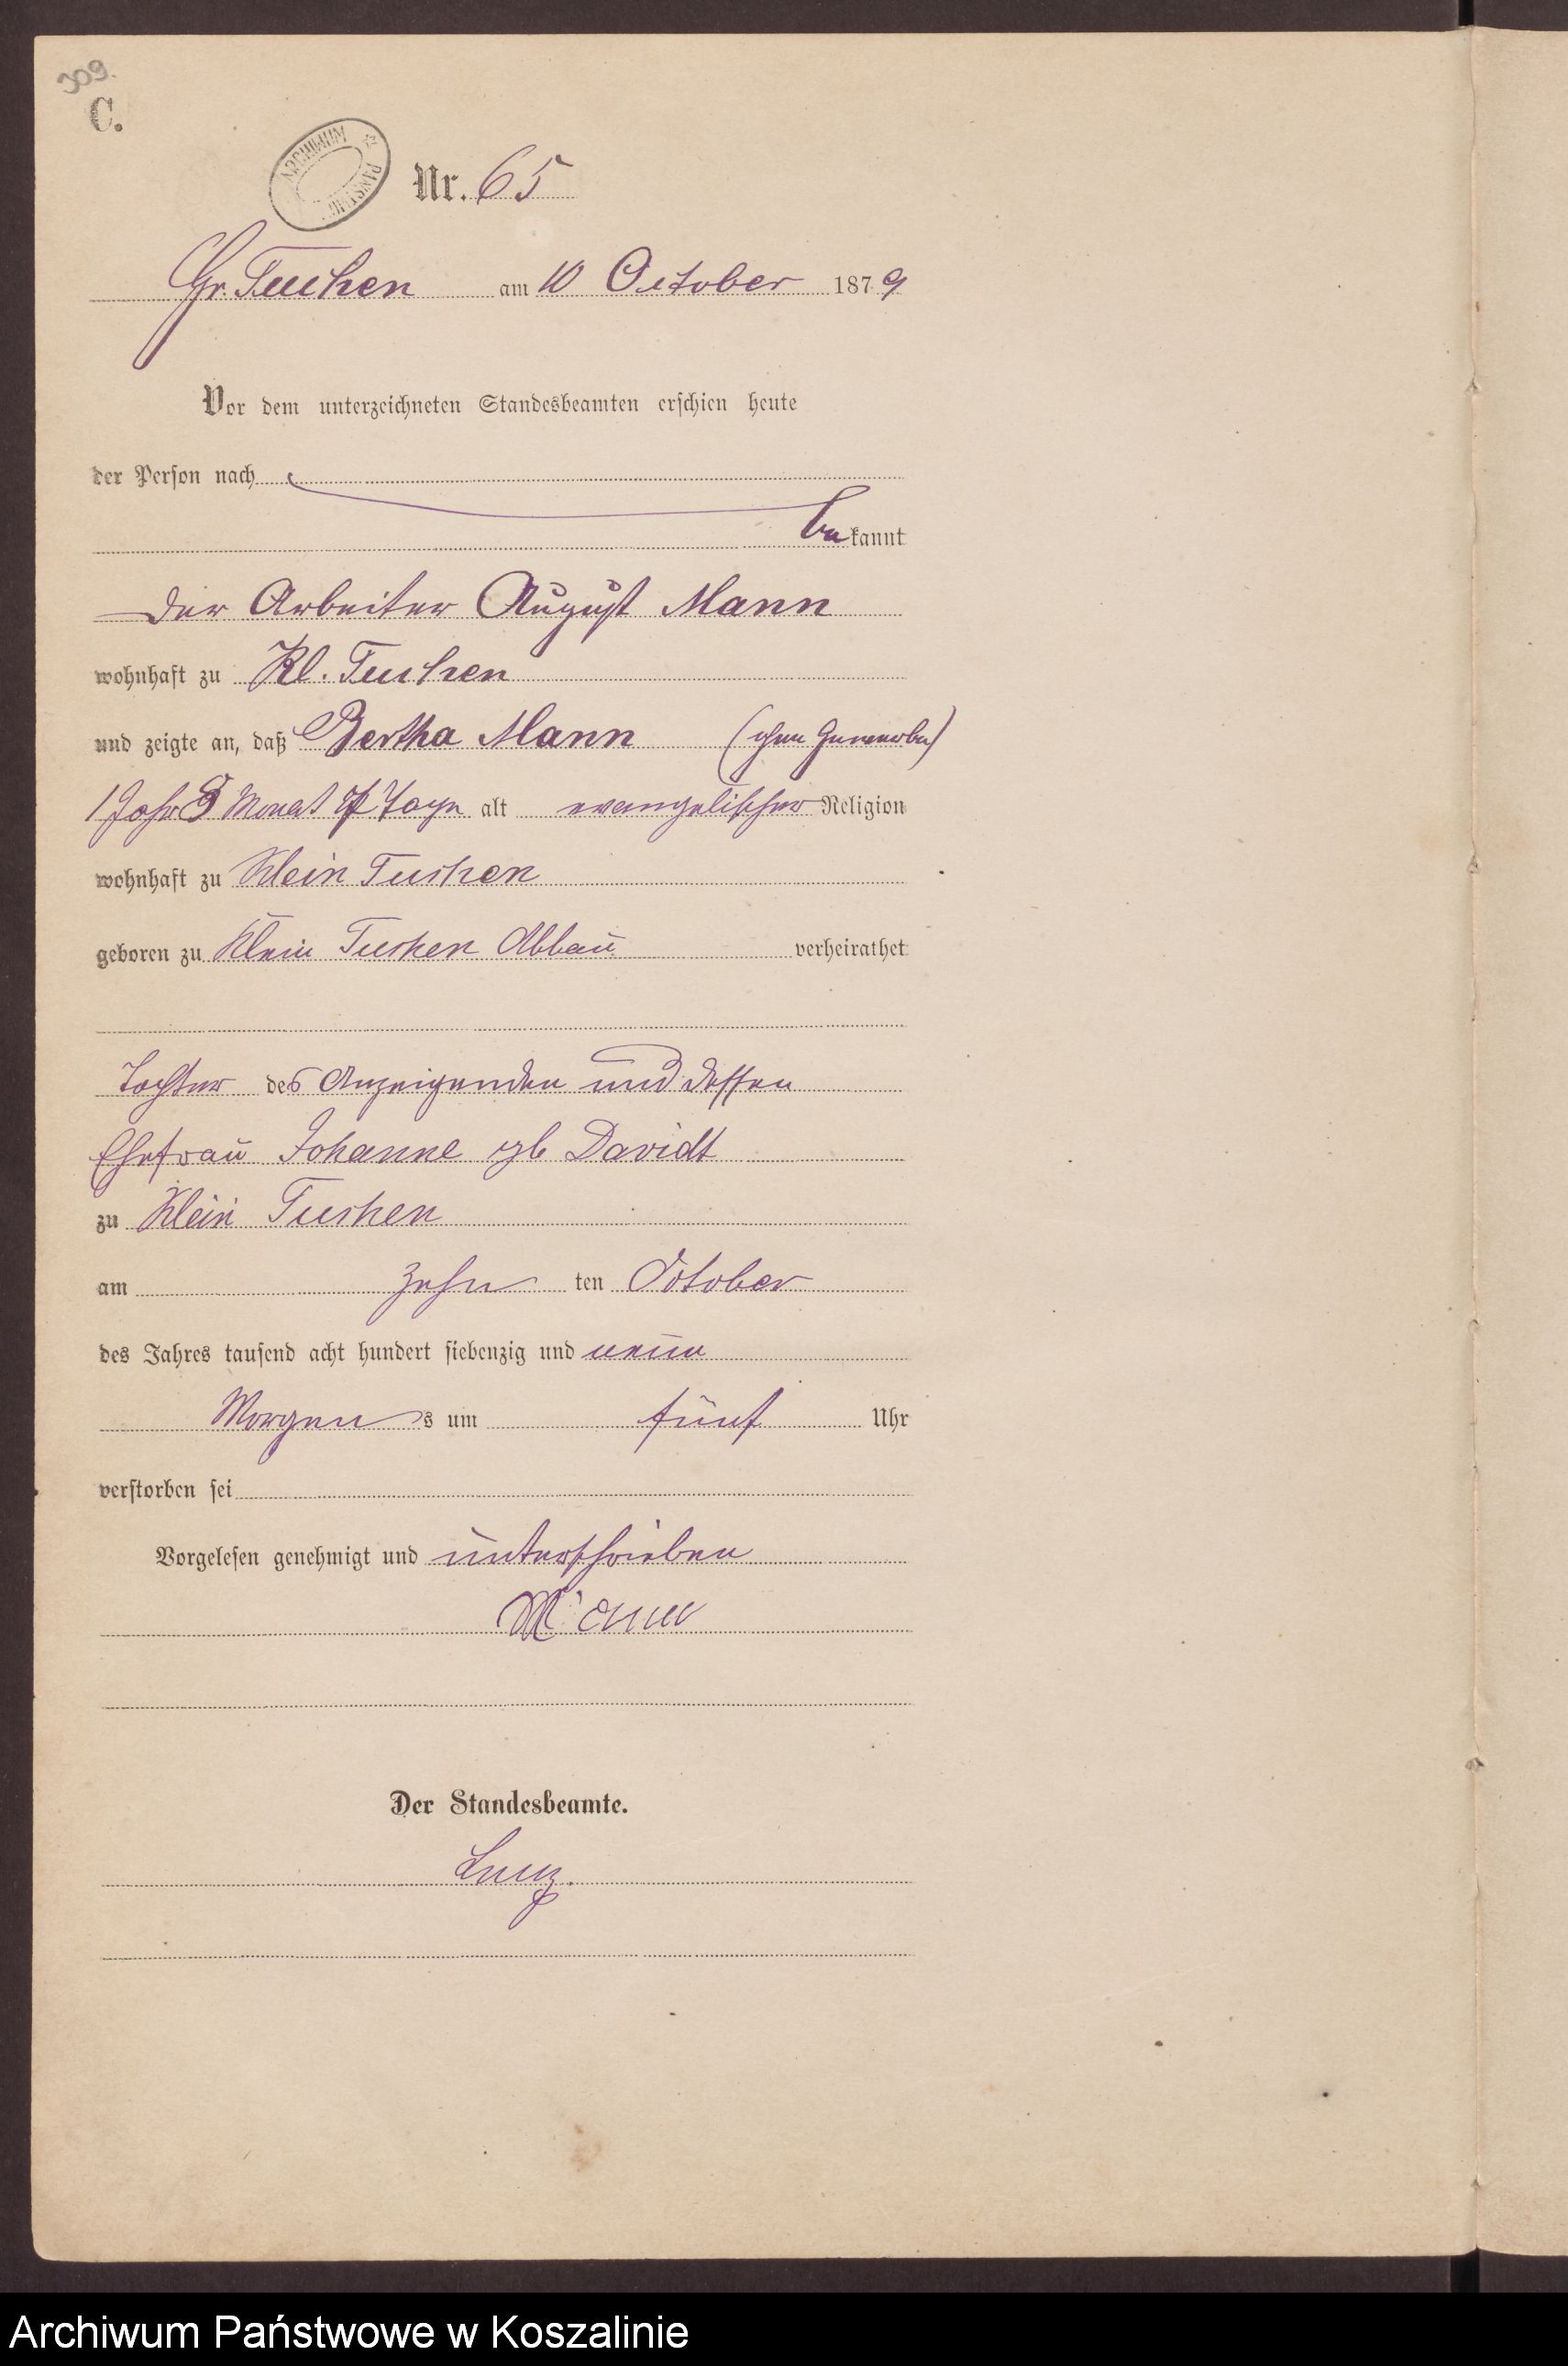 309.
C.
ARCHIWUM PAŃSTW.
Nr. 65
Gr. Tuchen am 10 October 1879
Vor dem unterzeichneten Standesbeamten erschien heute
der Person nach
bekannt
der Arbeiter August Mann
wohnhaft zu Kl. Tuchen
und zeigte an, daß Bertha Mann (ohne Gewerbe)
1 Jahr Monat Tage alt evangelischer Religion
wohnhaft zu Klein Tuchen
geboren zu Klein Tuchen Abbau verheirathet
Tochter des Anzeigenden und dessen
Ehefrau Johanne gb Davidt
zu Klein Tuchen
am zehn ten October
des Jahres tausend acht hundert siebenzig und neun
Morgens um fünf Uhr
verstorben sei
Vorgelesen genehmigt und unterschrieben
Mann
Der Standesbeamte.
Archiwum Państwowe w Koszalinie